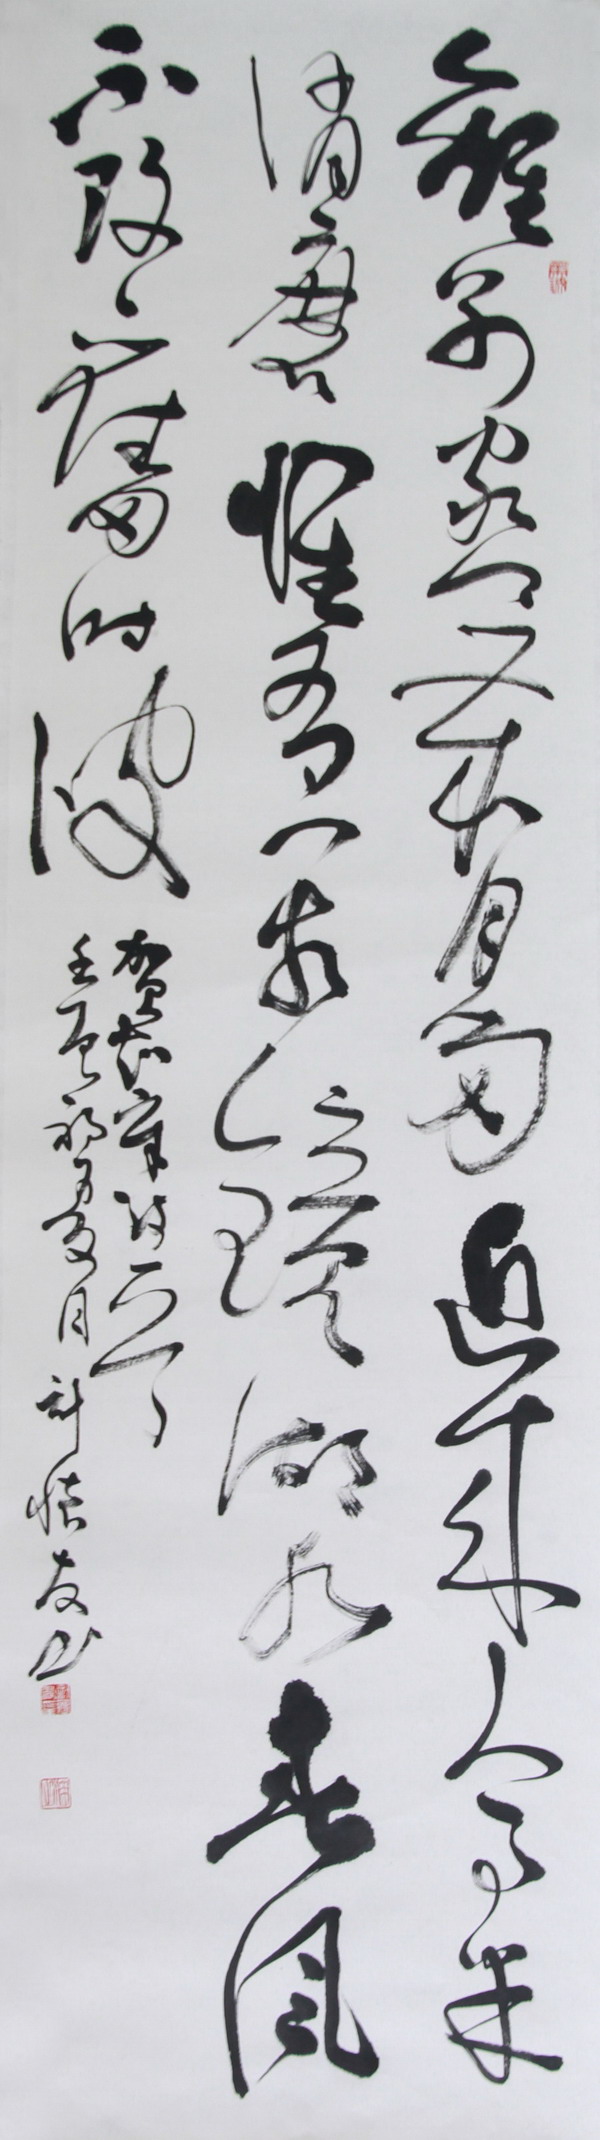 離別家鄉歲月多近来人事半
消磨惟有門前鏡湖水春風
不改舊時波
賀知章詩一首
壬辰初夏月許懷友书